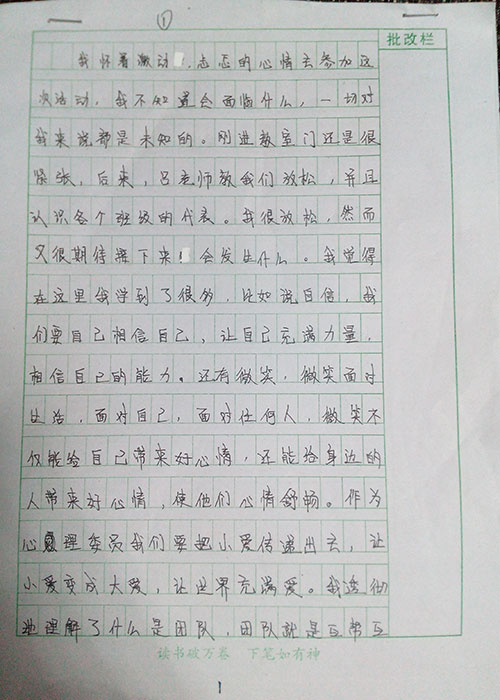 ①
批改栏
我怀着激动、忐忑的心情去参加这
次活动，我不知道会面临什么，一切对
我来说都是未知的。刚进教室门还是很
紧张，后来，吕老师教我们放松，并且
认识各个班级的代表。我很放松，然而
又很期待接下来会发生什么。我觉得
在这里我学到了很多，比如说自信，我
们要自己相信自己，让自己充满力量，
相信自己的能力。还有微笑，微笑面对
生活，面对自己，面对任何人，微笑不
仅能给自己带来好心情，还能给身边的
人带来好心情，使他们心情舒畅。作为
心理委员我们要把小爱传递出去，让
小爱变成大爱，让世界充满爱。我透彻
地理解了什么是团队，团队就是互帮互
读书破万卷 下笔如有神
1